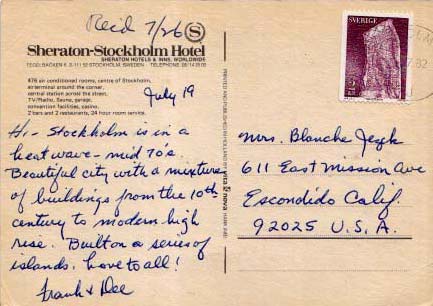 Recd 7/26
S
Sheraton-Stockholm Hotel
SHERATON HOTELS & INNS, WORLDWIDE
TEGELBACKEN 6, S-111 52 STOCKHOLM, SWEDEN TELEPHONE 08/14 26 00
476 air conditioned rooms, centre of Stockholm,
air terminal around the corner,
central station across the street.
TV/Radio, Sauna, garage,
convention facilities, casino,
2 bars and 2 restaurants, 24 hour room service.
July 19
Hi - Stockholm is in a
heat wave - mid 70's.
Beautiful city with a mixture
of buildings from the 10th
century to modern high
rise. Built on a series of
islands. Love to all!
Frank & Dee
SVERIGE
Mrs. Blanche Jezek
611 East Mission Ave
Escondido Calif.
92025 U.S.A.